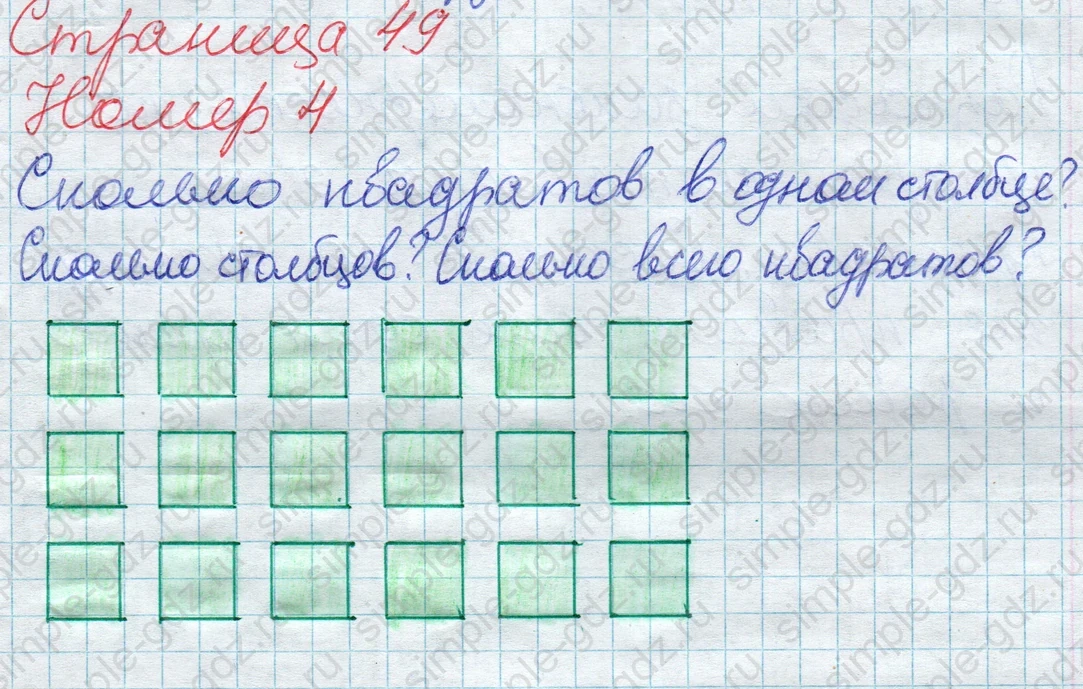 Страница 49
Номер 4
Сколько квадратов в одном столбце?
Сколько столбцов? Сколько всего квадратов?
simple-gdz.ru